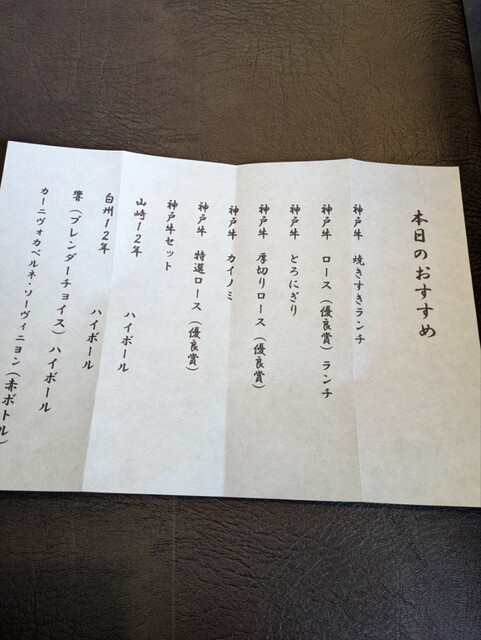 本日のおすすめ
神戸牛　焼きすきランチ
神戸牛　ロース（優良賞）ランチ
神戸牛　とろにぎり
神戸牛　厚切りロース（優良賞）
神戸牛　カイノミ
神戸牛　特選ロース（優良賞）
神戸牛セット
山崎12年　ハイボール
白州12年　ハイボール
響（ブレンダーチョイス）ハイボール
カーニヴォカベルネ・ソーヴィニヨン（赤ボトル）